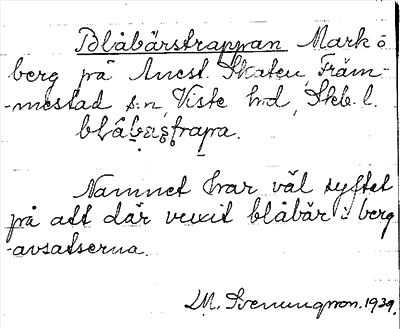 Blåbärstrappan Mark o
berg på Anest. Skaten, Främ-
-mestad s:n, Viste hd, Skb. l.
blåbæsṭrapa.
Namnet har väl syftet
på att där vuxit blåbär i berg
-avsatserna.
M. Svenungson. 1939.